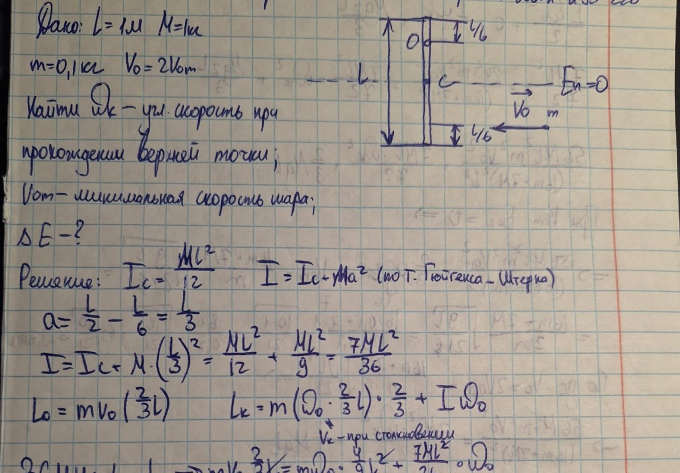 Дано: L = 1м M = 1кг
m = 0,1кг V₀ = 2V₀m
Найти ω̄к – угл. скорость при
прохождении верхней точки;
V₀m – минимальная скорость шара;
ΔE – ?
L/6
O
L
C
Eп = 0
V₀ m
L/6
Решение: Ic = ML²/12 I = Ic + Ma² (по т. Гюйгенса – Штерна)
a = L/2 - L/6 = L/3
I = Ic + M·(L/3)² = ML²/12 + ML²/9 = 7ML²/36
L₀ = mV₀(2/3 l) Lк = m(ω₀·2/3 l)·2/3 + Iω₀
Vк – при столкновении